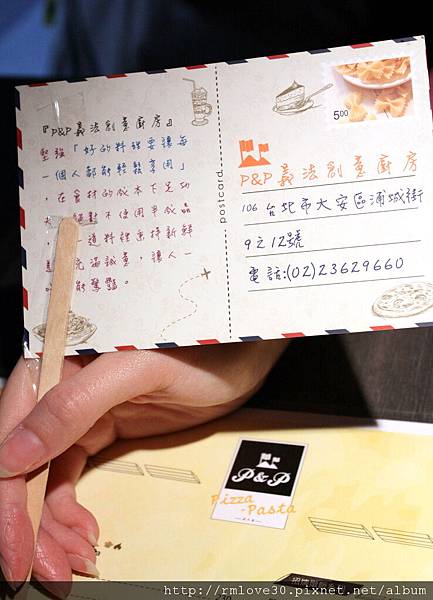 『P&P義法創意廚房』
堅強「好的料理要讓每
一個人都能輕鬆享用」
，在食材的成本下足功
絕對不使用半成品
一道料理秉持新鮮
充滿誠意，讓人一
能驚豔。
postcard
5.00
P&P義法創意廚房
106 台北市大安區浦城街
9之12號
電話:(02)23629660
P&P
Pizza
-Pasta
http://rmlove30.pixnet.net/album